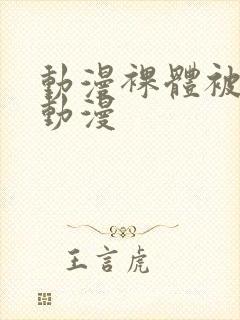 動漫裸體被
動漫
王言虎